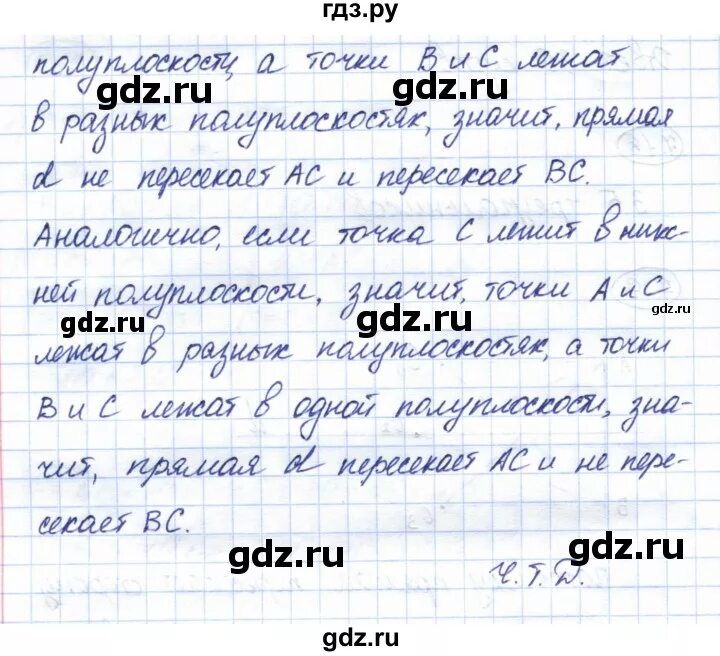 гдз.ру
полуплоскости, а точки В и С лежат
gdz.ru gdz.ru
в разных полуплоскостях, значит, прямая
d не пересекает АС и пересекает ВС.
Аналогично, если точка С лежит в ниж-
ней полуплоскости, значит, точки А и С
gdz.ru gdz.ru gdz.ru
лежат в разных полуплоскостях, а точки
В и С лежат в одной полуплоскости, зна-
чит, прямая d пересекает АС и не пере-
секает ВС.
gdz.ru gdz.ru
Ч.Т.Д.
gdz.ru